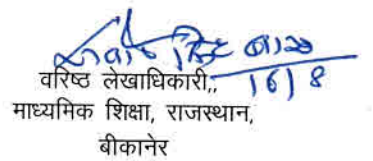 16/8
वरिष्ठ लेखाधिकारी,,
माध्यमिक शिक्षा, राजस्थान,
बीकानेर